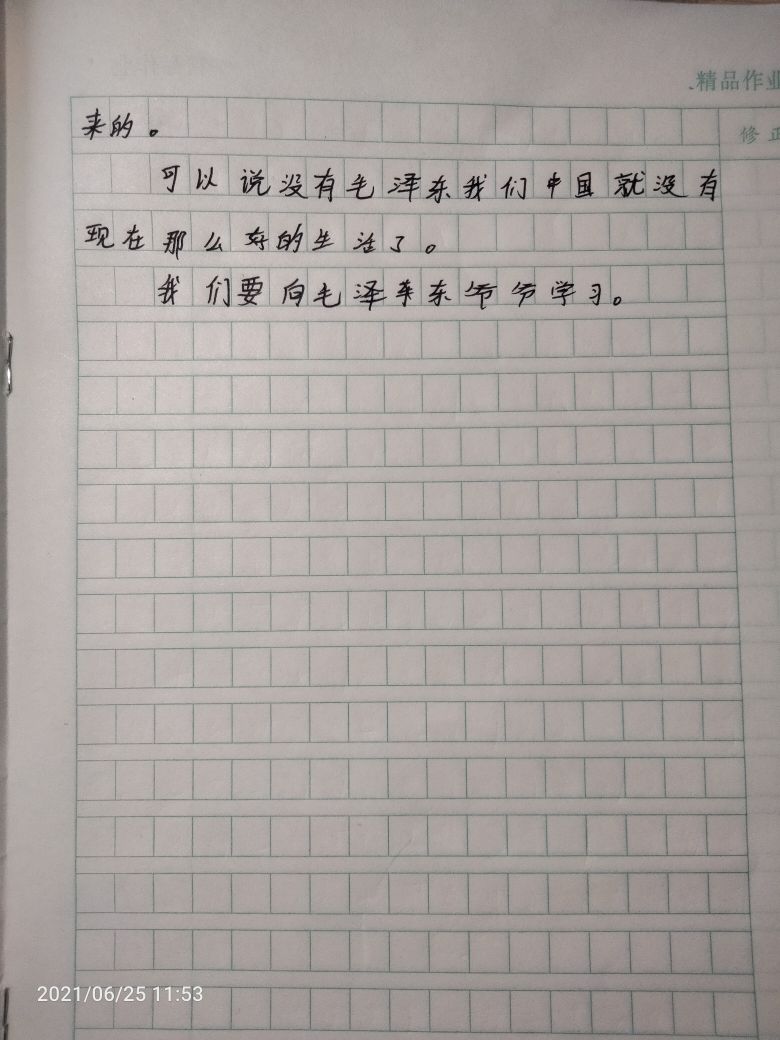 精品作业
修正
来的。
可以说没有毛泽东我们中国就没有
现在那么好的生活了。
我们要向毛泽东东爷爷学习。
2021/06/25 11:53